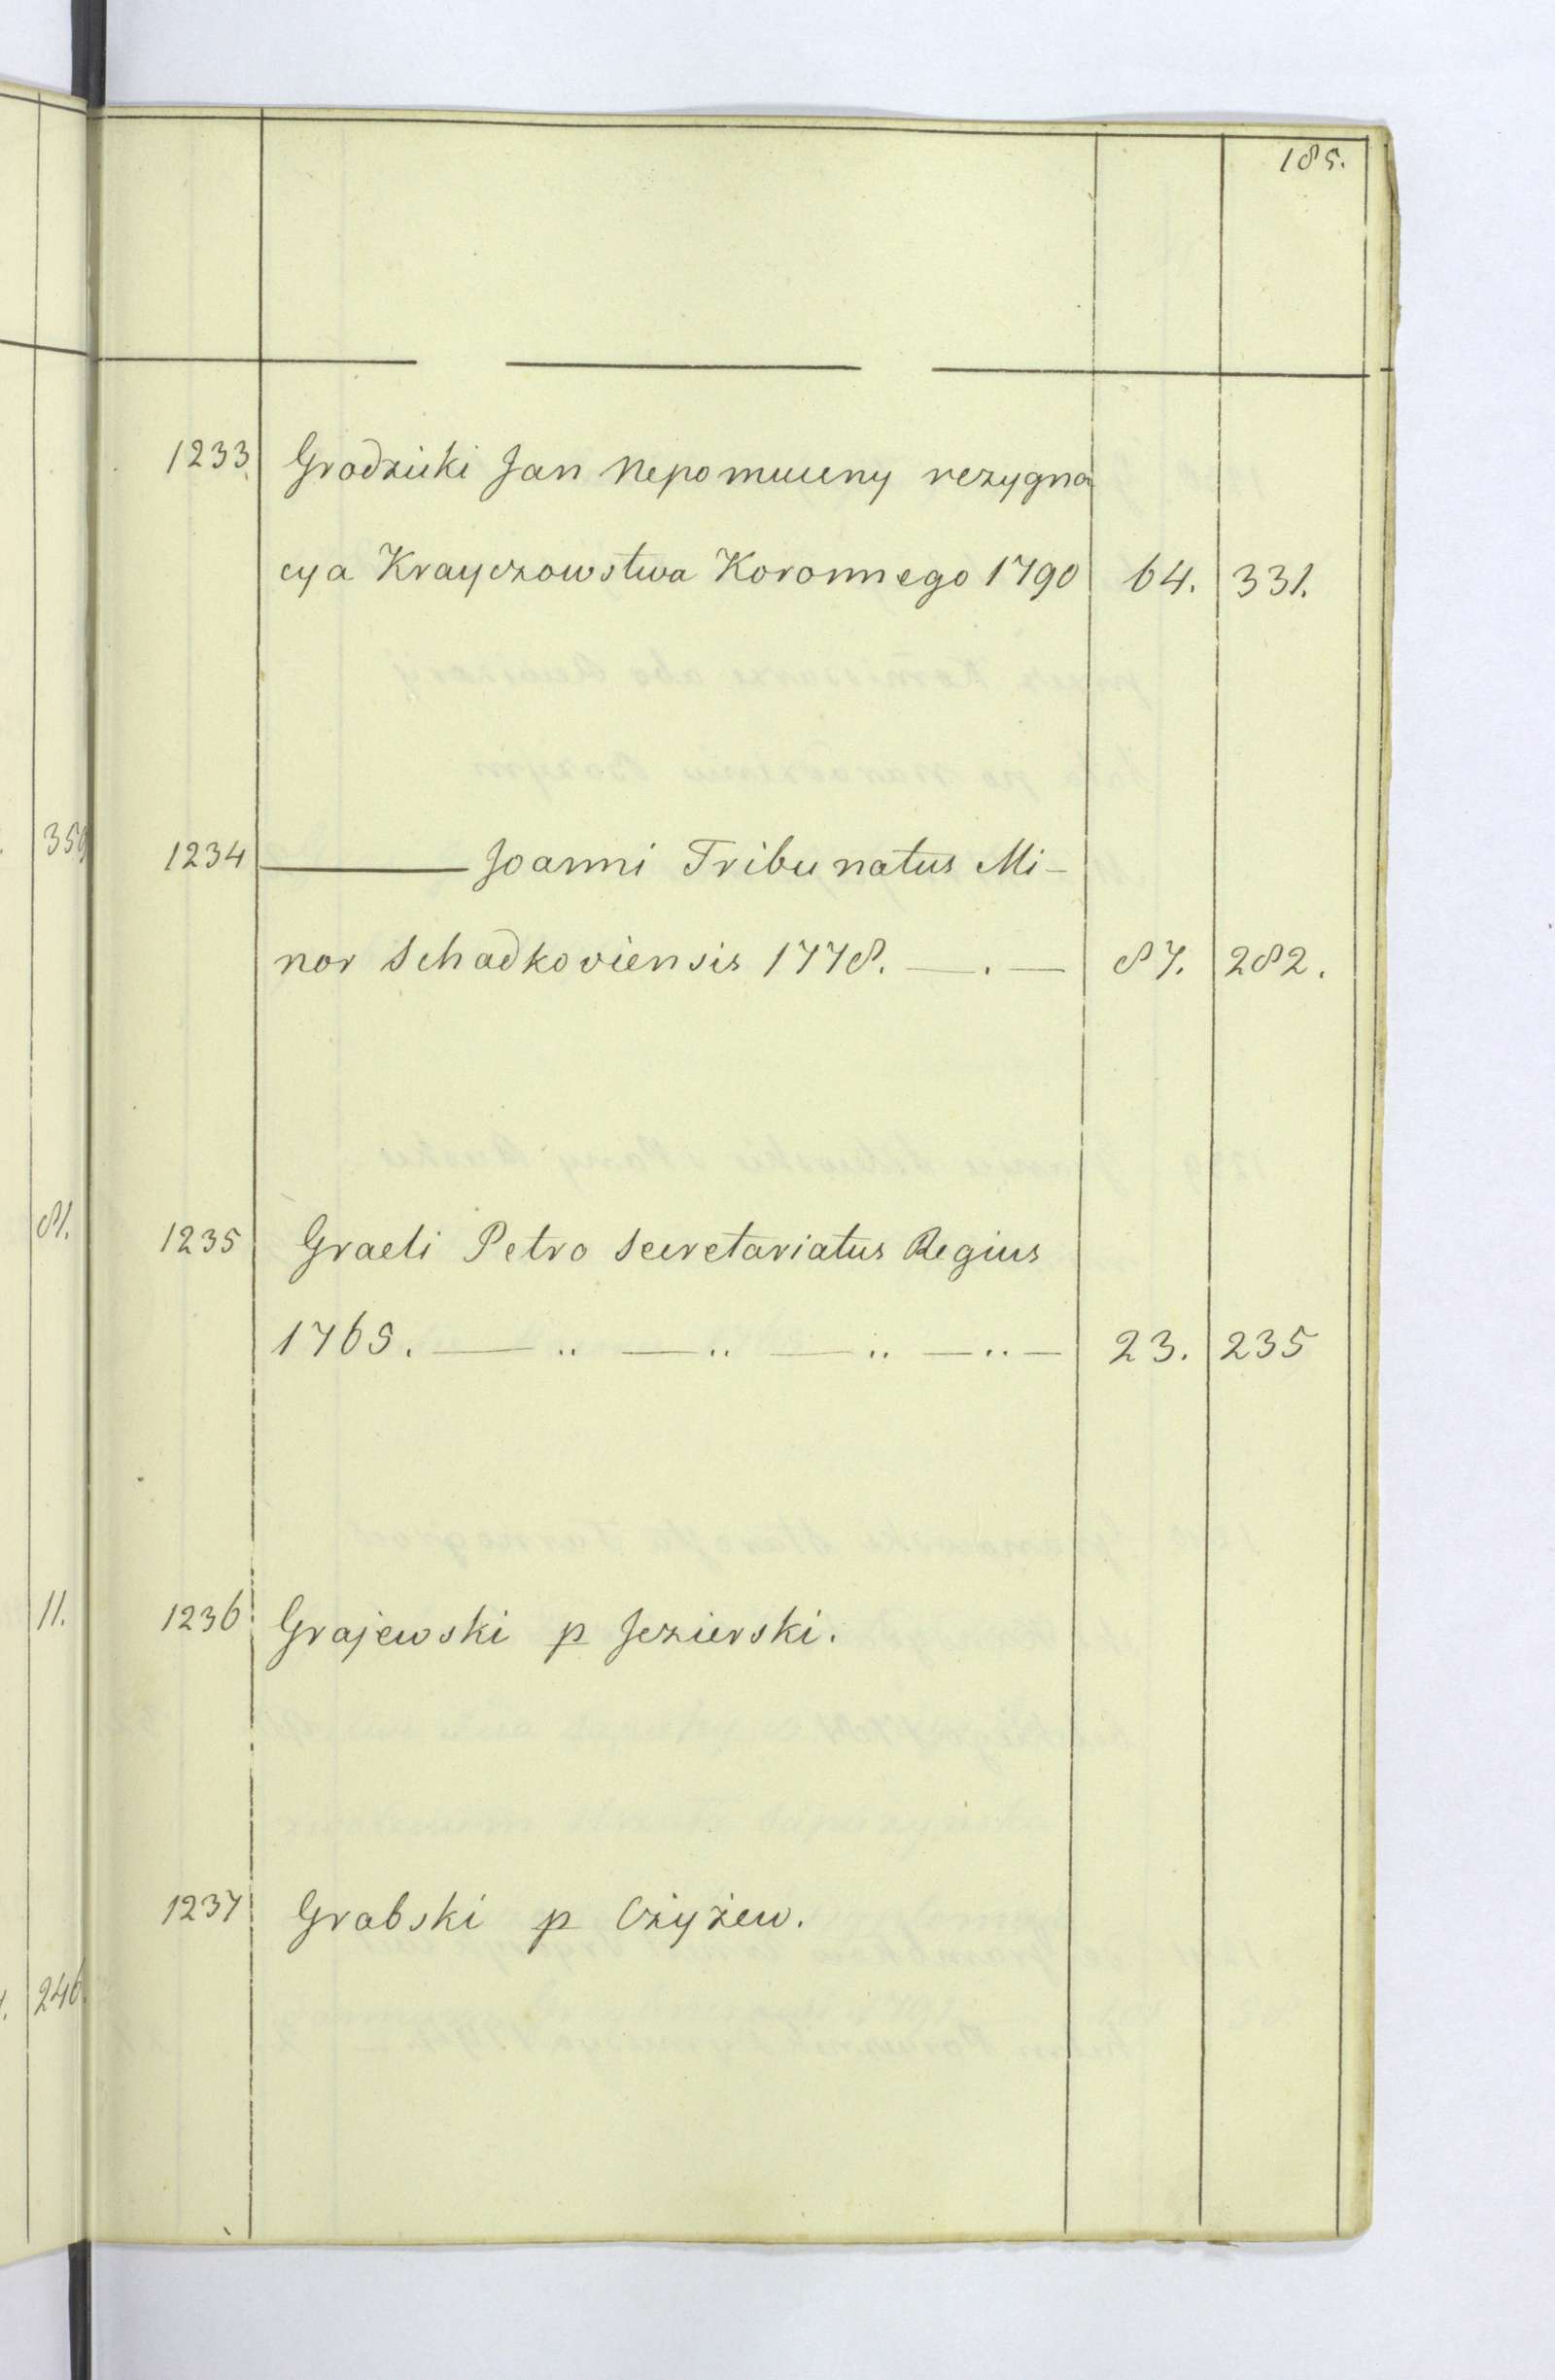 185.
1233. Grodzicki Jan Nepomuceny rezygna
cya Krayczowstwa Koronnego 1790 64. 331.
1234 ——— Joanni Tribunatus Mi-
nor Schadkoviensis 1778. — . — 87. 282.
1235 Graeti Petro Secretariatus Regius
1765. — .. — .. — .. — .. — 23. 235
1236 Grajewski p Jezierski.
1237 Grabski p Czyżew.
359
81.
11.
246.